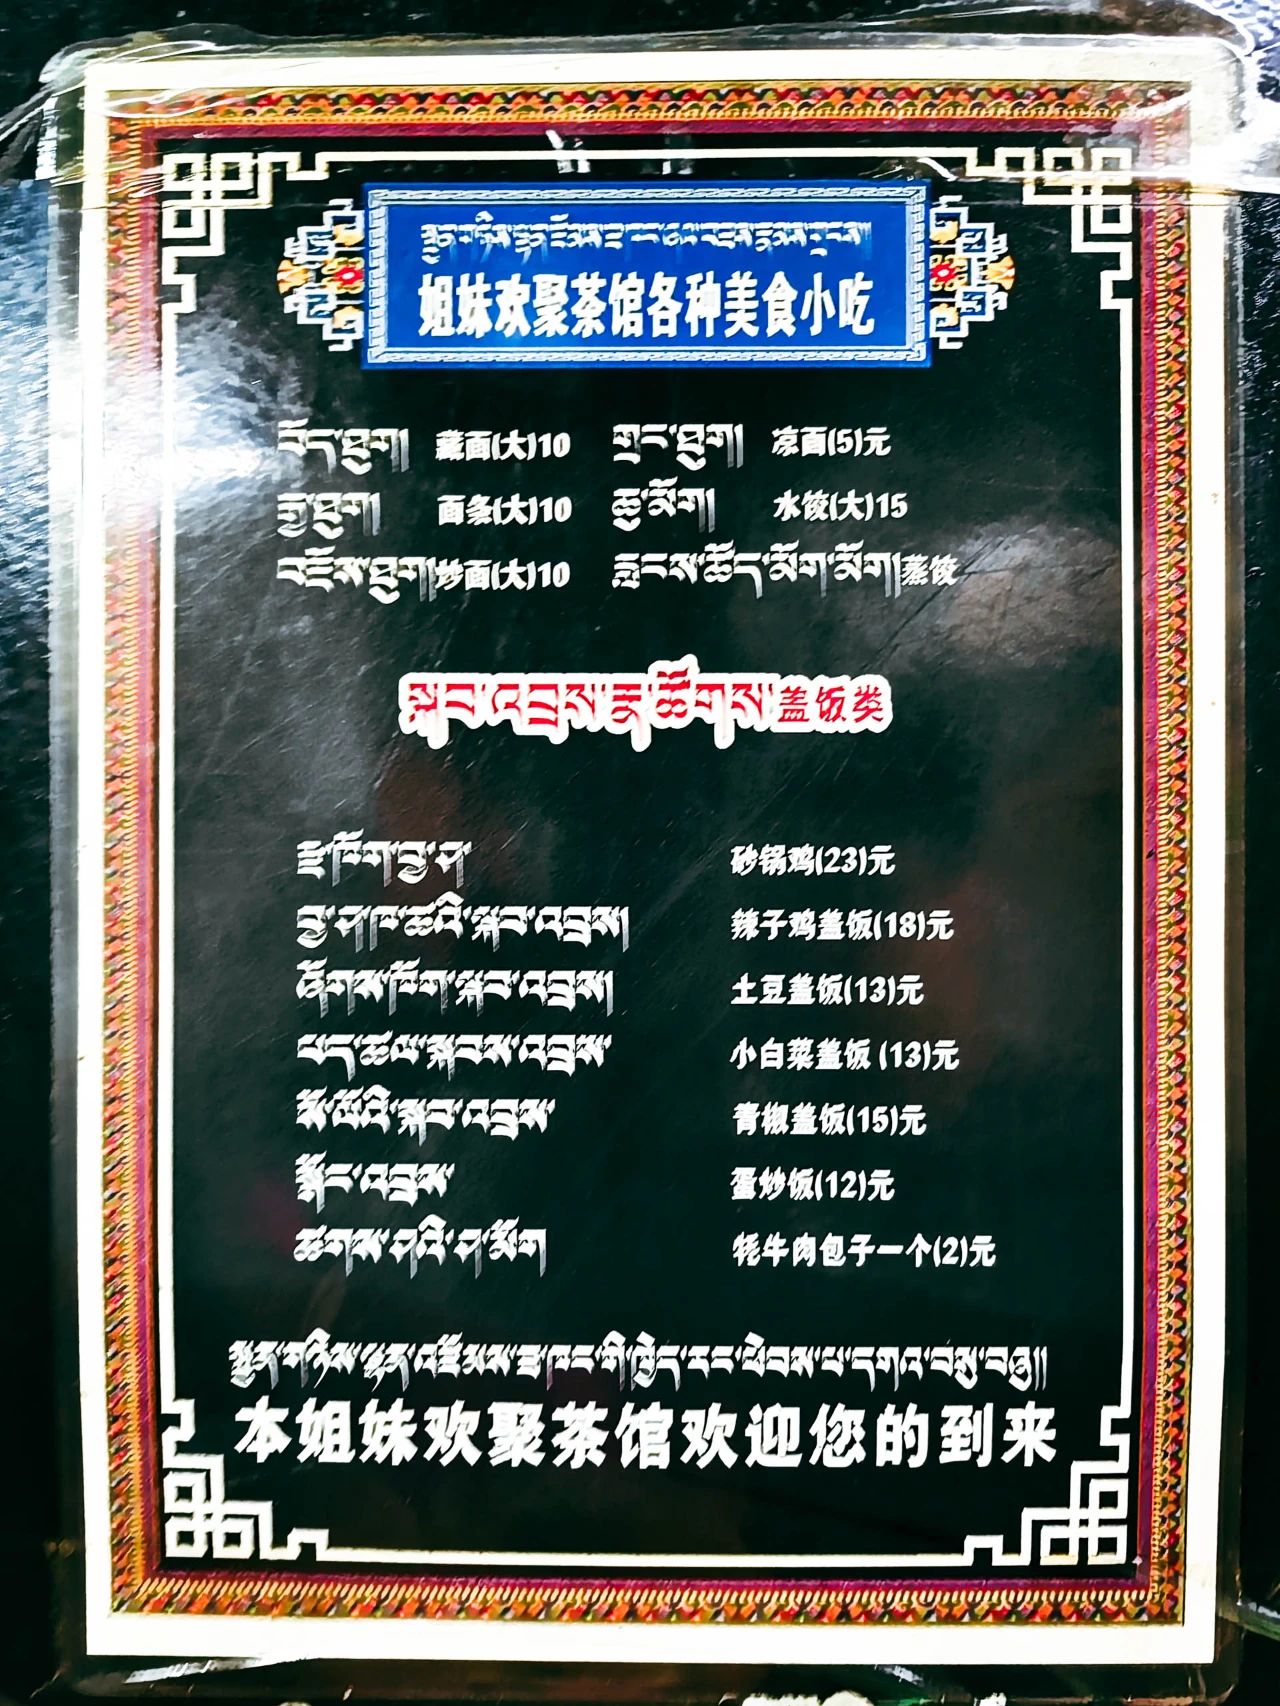 姐妹欢聚茶馆各种美食小吃
བོད་ཐུག 藏面(大)10 གྲང་ཐུག 凉面(5)元
རྒྱ་ཐུག 面条(大)10 ཆུ་མོག 水饺(大)15
炒面(大)10 རླངས་ཚོད་མོག་མོག 蒸饺
盖饭类
砂锅鸡(23)元
བྱ་ཤ་ཁ་ཚའི་སྐབ་འབྲས། 辣子鸡盖饭(18)元
ཞོགས་ཁོག་སྐབ་འབྲས། 土豆盖饭(13)元
པད་ཚལ་སྐབས་འབྲས 小白菜盖饭 (13)元
青椒盖饭(15)元
སྒོང་འབྲས 蛋炒饭(12)元
ཚགས་ཤའི་ཤ་མོག 牦牛肉包子一个(2)元
本姐妹欢聚茶馆欢迎您的到来